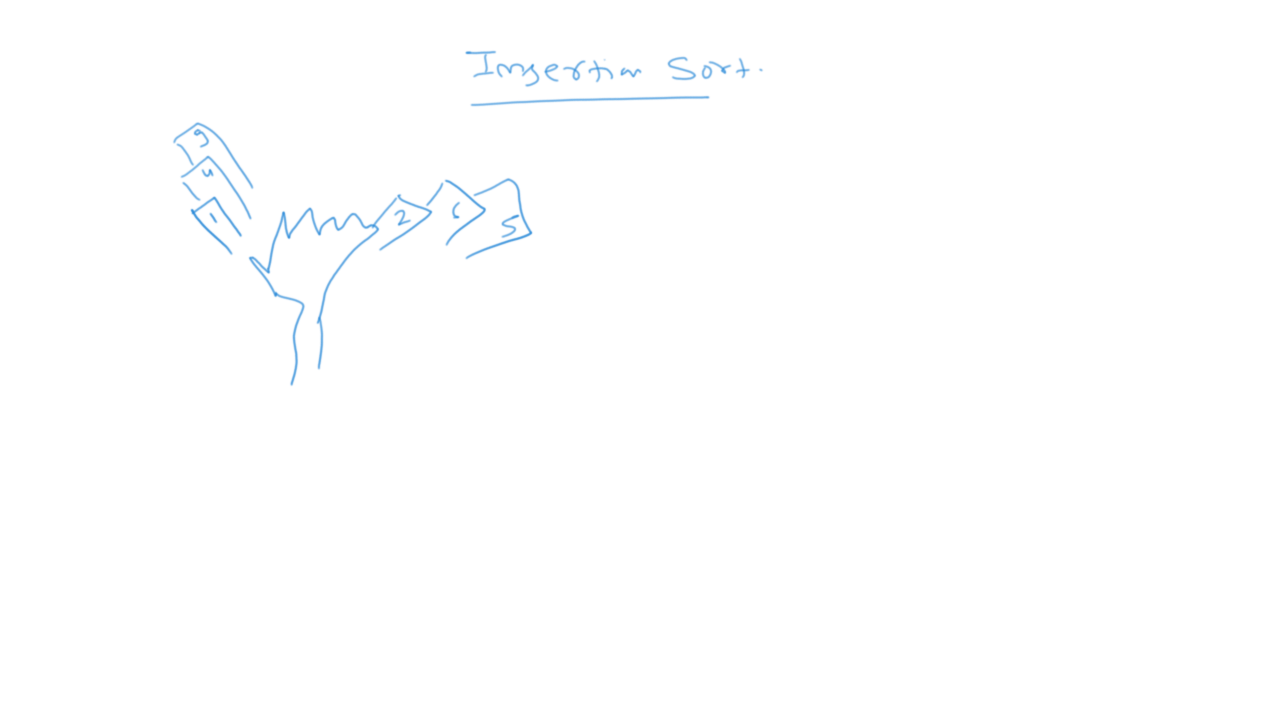 Insertion Sort.
9
4
1
2
6
5